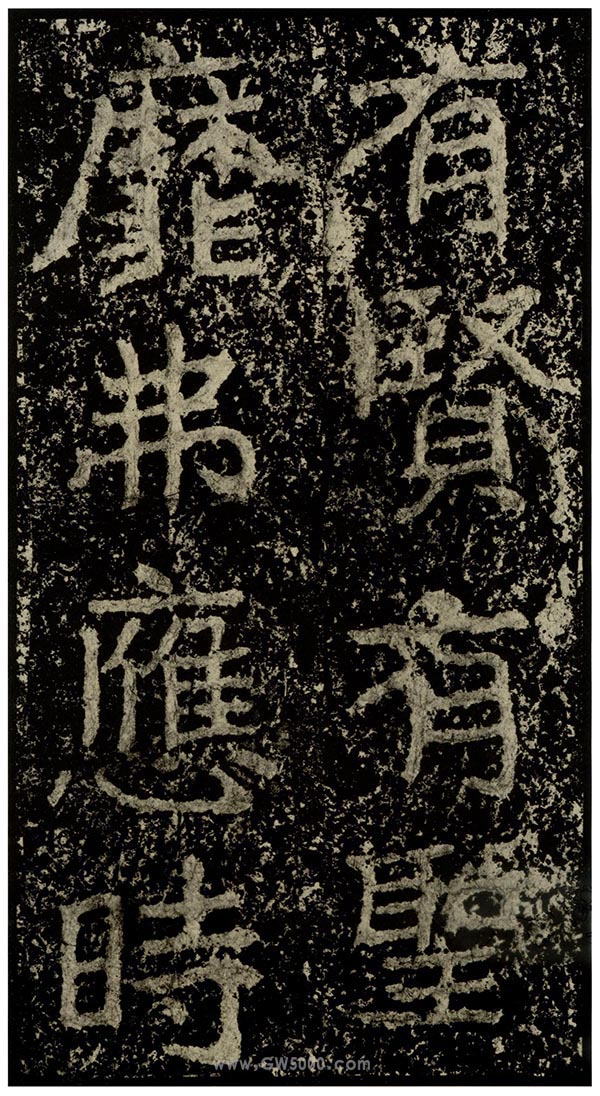 有賢有聖
靡弗應時
www.GW5000.com